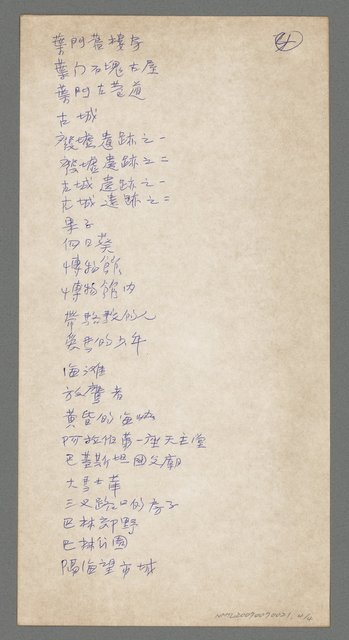 4
葉門舊樓房
葉門石塊古屋
葉門古巷道
古城
廢墟遺跡之一
廢墟遺跡之二
古城遺跡之一
古城遺跡之二
果子
向日葵
博物館
博物館內
帶駱駝的人
愛馬的少年
海灘
放鷹者
黃昏的海
阿拉伯第一座天主堂
巴基斯坦國父廟
三叉路口的房子
巴林郊野
巴林公園
隔海望市城
NMTL20090090021. 4/4